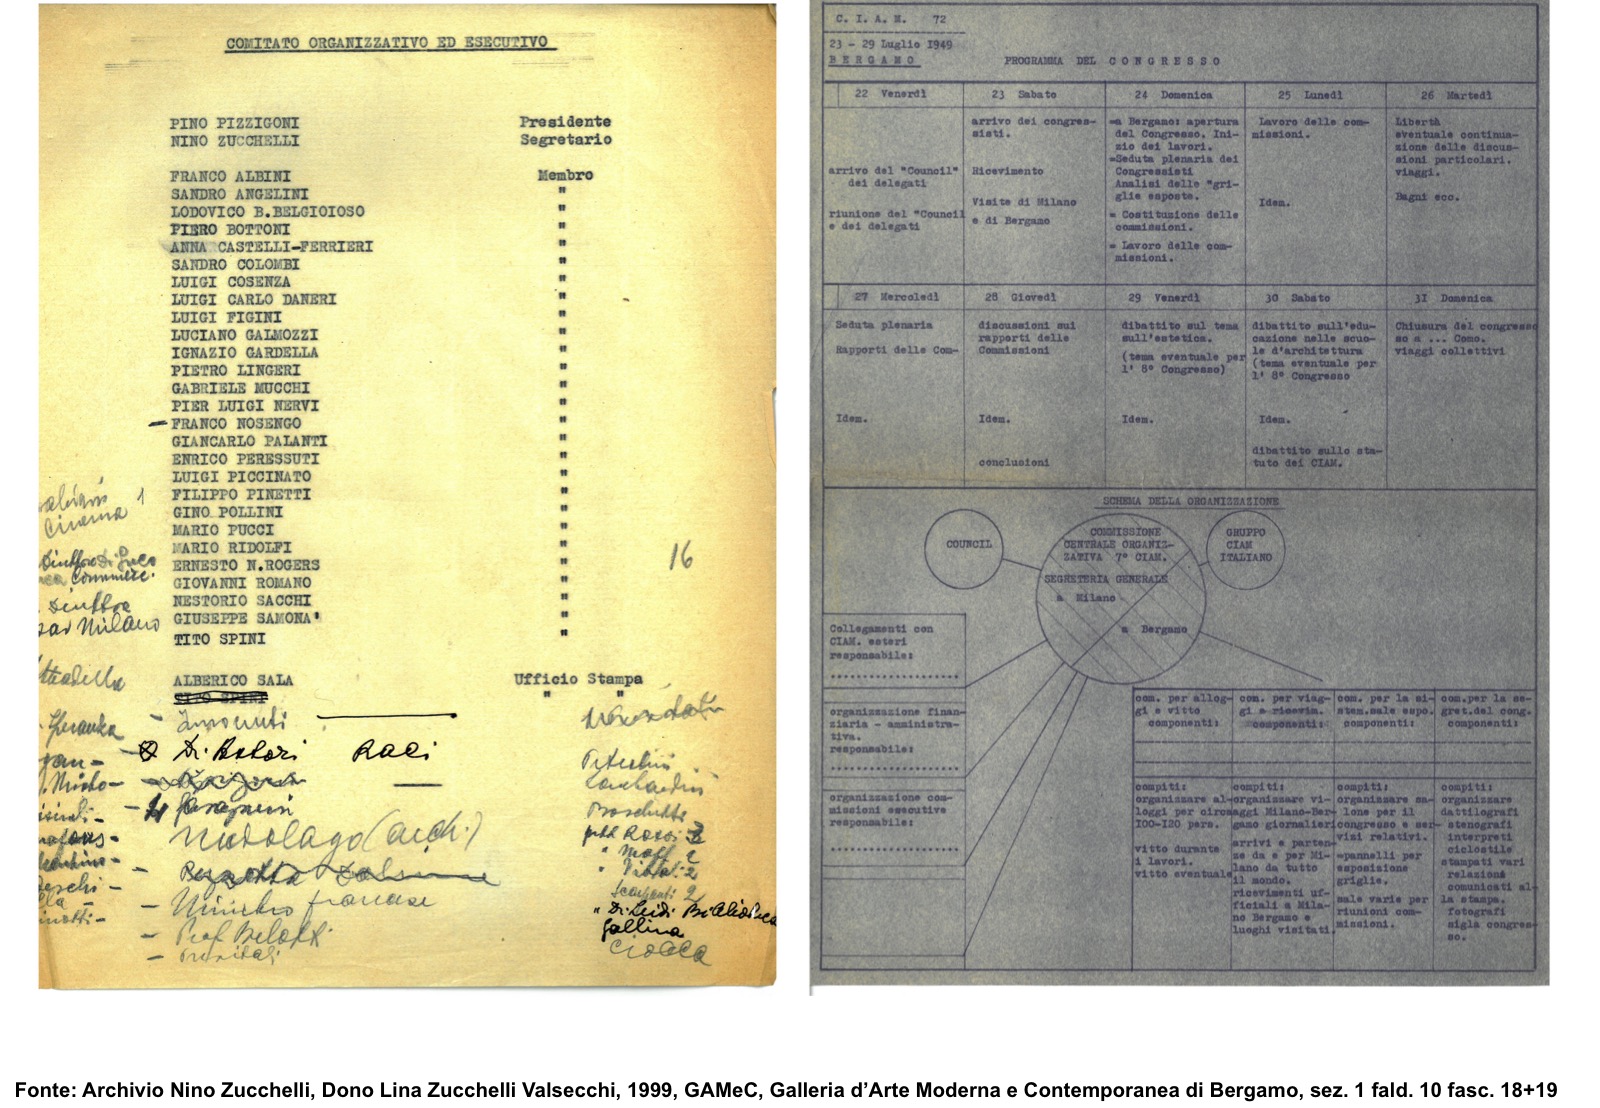 COMITATO ORGANIZZATIVO ED ESECUTIVO
PINO PIZZIGONI Presidente
NINO ZUCCHELLI Segretario
FRANCO ALBINI Membro
SANDRO ANGELINI "
LODOVICO B.BELGIOIOSO "
PIERO BOTTONI "
ANNA CASTELLI-FERRIERI "
SANDRO COLOMBI "
LUIGI COSENZA "
LUIGI CARLO DANERI "
LUIGI FIGINI "
LUCIANO GALMOZZI "
IGNAZIO GARDELLA "
PIETRO LINGERI "
GABRIELE MUCCHI "
PIER LUIGI NERVI "
FRANCO NOSENGO "
GIANCARLO PALANTI "
ENRICO PERESSUTI "
LUIGI PICCINATO "
FILIPPO PINETTI "
GINO POLLINI "
MARIO PUCCI "
MARIO RIDOLFI "
ERNESTO N.ROGERS "
GIOVANNI ROMANO "
NESTORIO SACCHI "
GIUSEPPE SAMONA' "
TITO SPINI "
16
Cinema
Milano
ALBERICO SALA Ufficio Stampa
" "
Lombardini
(arch.)
Ministro francese
Prof Belotti
Gallina
Ciocca
C. I. A. M. 72
23 - 29 Luglio 1949
BERGAMO
PROGRAMMA DEL CONGRESSO
22 Venerdì
arrivo del "Council"
dei delegati
riunione del "Council
e dei delegati
23 Sabato
arrivo dei congres-
sisti.
Ricevimento
Visite di Milano
e di Bergamo
24 Domenica
=a Bergamo: apertura
del Congresso. Ini-
zio dei lavori.
=Seduta plenaria dei
Congressisti
Analisi delle "gri-
glie esposte.
= Costituzione delle
commissioni.
= Lavoro delle com-
missioni.
25 Lunedì
Lavoro delle com-
missioni.
Idem.
26 Martedì
Libertà
eventuale continua-
zione delle discus-
sioni particolari.
viaggi.
Bagni ecc.
27 Mercoledì
Seduta plenaria
Rapporti delle Com-
Idem.
28 Giovedì
discussioni sui
rapporti delle
Commissioni
Idem.
conclusioni
29 Venerdì
dibattito sul tema
sull'estetica.
(tema eventuale per
l' 8° Congresso)
Idem.
30 Sabato
dibattito sull'edu-
cazione nelle scuo-
le d'architettura
(tema eventuale per
l' 8° Congresso
Idem.
dibattito sullo sta-
tuto dei CIAM.
31 Domenica
Chiusura del congresso
so a ... Como.
viaggi collettivi
SCHEMA DELLA ORGANIZZAZIONE
COUNCIL
COMMISSIONE
CENTRALE ORGANIZ-
ZATIVA 7° CIAM.
SEGRETERIA GENERALE
a Milano
a Bergamo
GRUPPO
CIAM
ITALIANO
Collegamenti con
CIAM. esteri
responsabile:
organizzazione finan-
ziaria - amministra-
tiva.
responsabile:
organizzazione com-
missioni esecutive
responsabile:
com. per allog-
gi e vitto
componenti:
com. per viag-
gi e ricevim.
componenti:
com. per la si-
stem.sale espo.
componenti:
com.per la se-
gret.del cong.
componenti:
compiti:
organizzare al-
loggi per circa
100-120 pers.
vitto durante
i lavori.
vitto eventuale
compiti:
organizzare vi-
aggi Milano-Ber-
gamo giornalieri
arrivi e parten-
ze da e per Mi-
lano da tutto
il mondo.
ricevimenti uf-
ficiali a Mila-
no Bergamo e
luoghi visitati.
compiti:
organizzare sa-
lone per il
congresso e ser-
vizi relativi.
=pannelli per
esposizione
griglie.
sale varie per
riunioni com-
missioni.
compiti:
organizzare
dattilografi
stenografi
interpreti
ciclostile
stampati vari
relazioni
comunicati al-
la stampa.
fotografi
sigla congres-
so.
Fonte: Archivio Nino Zucchelli, Dono Lina Zucchelli Valsecchi, 1999, GAMeC, Galleria d'Arte Moderna e Contemporanea di Bergamo, sez. 1 fald. 10 fasc. 18+19